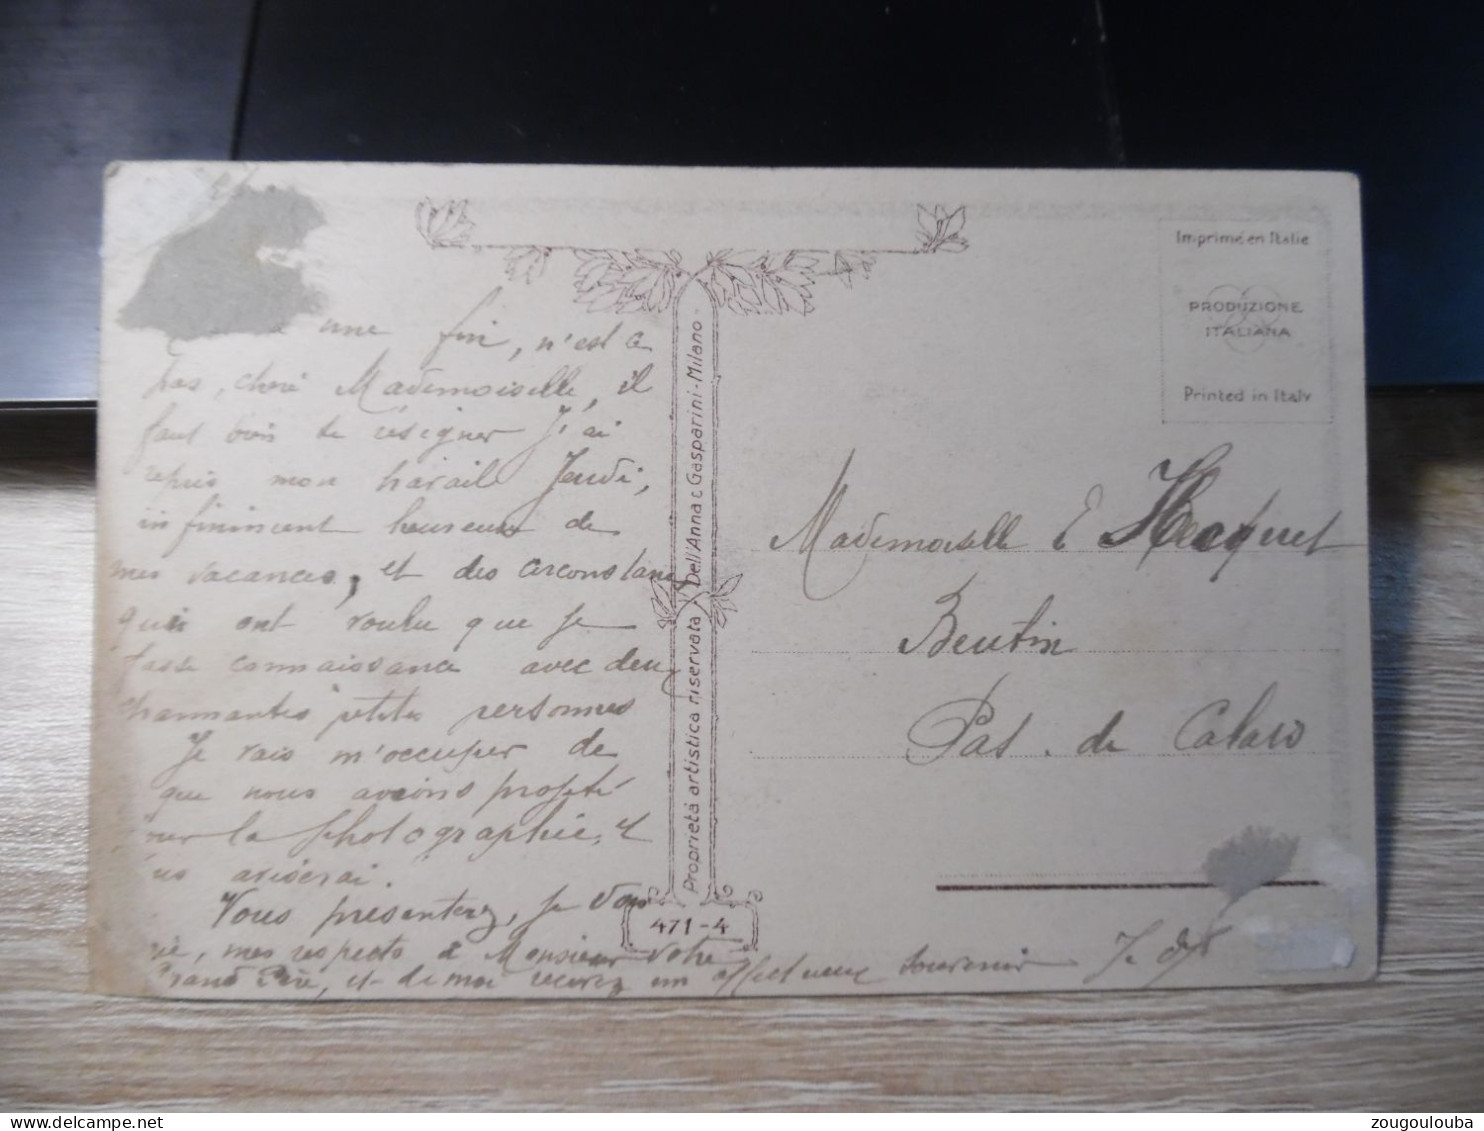 une fin, n'est ce
pas, chère Mademoiselle, il
faut bien se résigner J'ai
repris mon travail Jeudi,
infiniment heureux de
mes vacances, et des circonstances
qui ont voulu que je
fasse connaissance avec deux
charmantes petites personnes
Je vais m'occuper de
que nous avions projeté
sur la photographie, &
aviserai.
Vous présenterez, je vous
prie, mes respects à Monsieur votre
Grand Père, et de moi recevez un affectueux souvenir
Proprietà artistica riservata Dell'Anna e Gasparini - Milano
471-4
Imprimé en Italie
PRODUZIONE
ITALIANA
Printed in Italy
Mademoiselle E Hecquet
Beutin
Pas. de Calais
delcampe.net
zougoulouba